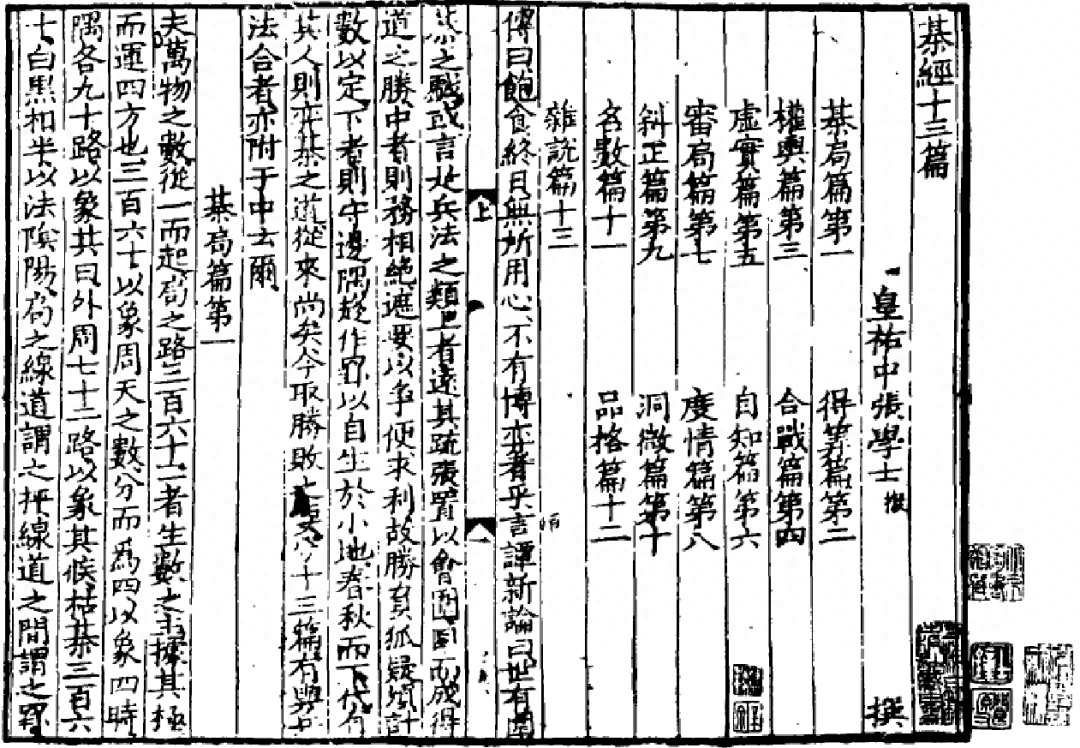 棊經十三篇
皇祐中張學士 撰
棊局篇第一 得筭篇第二
權輿篇第三 合戰篇第四
虛實篇第五 自知篇第六
審局篇第七 度情篇第八
斜正篇第九 洞微篇第十
名數篇十一 品格篇十二
雜說篇十三
傳曰飽食終日無所用心不有博弈者乎言譚新論曰世有圍
棊之戲或言是兵法之類上者遠其疏張置以會圍因而成得
道之勝中者則務相絕遮要以爭便求利故勝負狐疑須計
數以定下者則守邊隅趍作罫以自生於小地春秋而下代有
其人則弈棊之道從來尚矣今取勝敗之要分十三篇有與兵
法合者亦附于中云爾
棊局篇第一
夫萬物之數從一而起局之路三百六十一者生數之主據其極
而運四方也三百六十以象周天之數分而爲四以象四時
隅各九十路以象其日外周七十二路以象其候枯棊三百六
十白黑相半以法陰陽局之線道謂之枰線道之間謂之罫
上
一